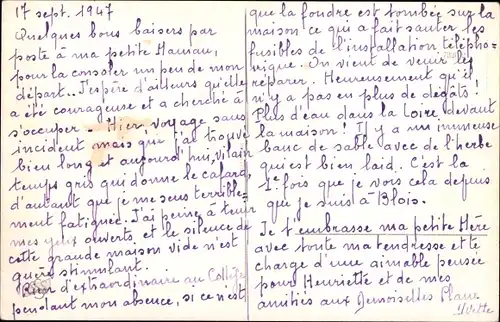 17 sept. 1947
Quelques bons baisers par
poste à ma petite Maman,
pour la consoler un peu de mon
départ... J'espère d'ailleurs qu'elle
a été courageuse et a cherché à
s'occuper - Hier, voyage sans
incident mais que j'ai trouvé
bien long et aujourd'hui, vilain
temps gris qui donne le cafard,
d'autant que je me sens terrible-
ment fatiguée. J'ai peine à tenir
mes yeux ouverts et le silence de
cette grande maison vide n'est
guère stimulant.
Rien d'extraordinaire au Collège
pendant mon absence, si ce n'est
que la foudre est tombée sur la
maison ce qui a fait sauter les
fusibles de l'installation télépho-
nique. On vient de venir les
réparer. Heureusement qu'il
n'y a pas eu plus de dégâts!
Plus d'eau dans la Loire, devant
la maison! Il y a un immense
banc de sable avec de l'herbe
qui est bien laid. C'est la
1e fois que je vois cela depuis
que je suis à Blois.
Je t'embrasse ma petite Mère
avec toute ma tendresse et te
charge d'une aimable pensée
pour Henriette et de mes
amitiés aux Demoiselles
Yvette